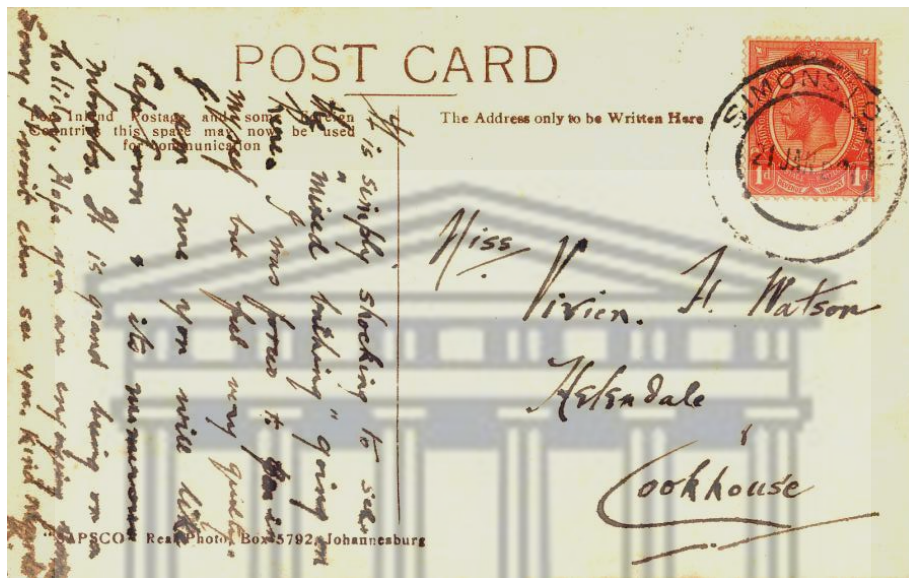 POST CARD
For Inland Postage and some Foreign
Countries this space may now be used
for communication
The Address only to be Written Here
SIMONSTOWN
21 JAN
1d 1d
It is simply shocking to see
the "mixed bathing" going on
here I was forced to join in
myself but feel very guilty.
I am sure you will like
Capetown & its numerous
It is grand being on a
holiday. Hope you are enjoying
Sorry I wont see you. Kind
Miss
Vivien. H. Watson
Helendale
Cookhouse
"SAPSCO" Real Photo, Box 5792, Johannesburg